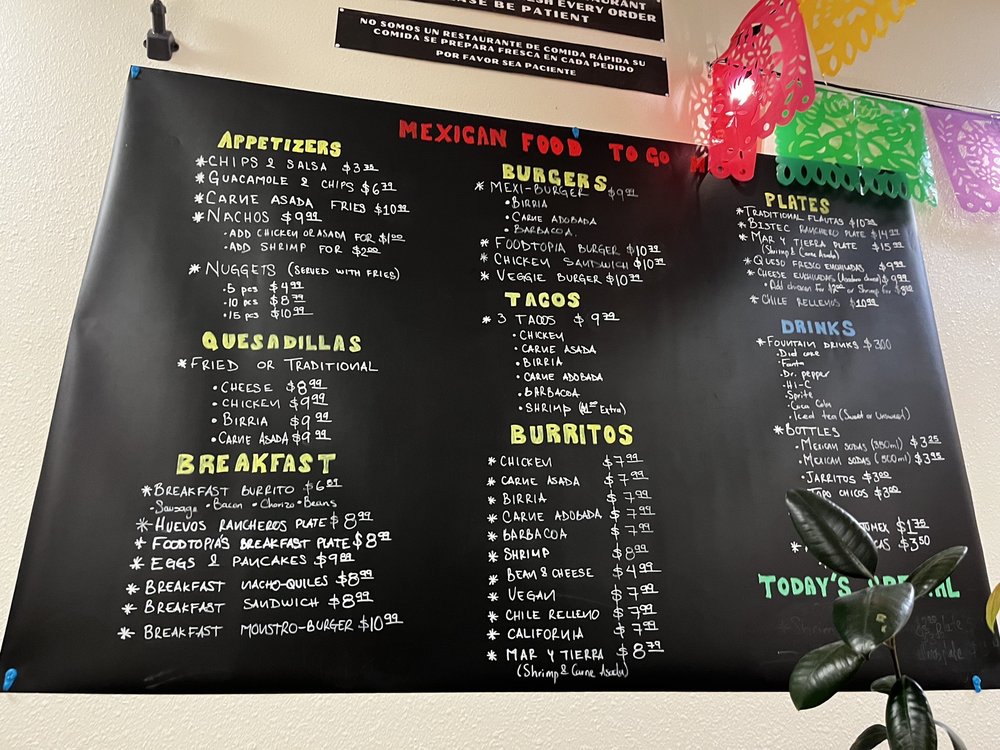 RESTAURANT
SH EVERY ORDER
BE PATIENT
NO SOMOS UN RESTAURANTE DE COMIDA RÁPIDA SU
COMIDA SE PREPARA FRESCA EN CADA PEDIDO
POR FAVOR SEA PACIENTE
MEXICAN FOOD TO GO
APPETIZERS
*CHIPS & SALSA
*GUACAMOLE & CHIPS $6.79
*CARNE ASADA FRIES $10.99
*NACHOS $9.99
•ADD CHICKEN OR ASADA FOR $1.00
•ADD SHRIMP FOR $2.00
*NUGGETS (SERVED WITH FRIES)
•5 pcs $4.99
•10 pcs $8.79
•15 pcs $10.99
QUESADILLAS
*FRIED OR TRADITIONAL
•CHEESE $8.99
•CHICKEN $9.99
•BIRRIA $9.99
•CARNE ASADA $9.99
BREAKFAST
*BREAKFAST BURRITO
•Sausage •Bacon •Chorizo •Beans
*HUEVOS RANCHEROS PLATE $8.99
*FOODTOPIA'S BREAKFAST PLATE $8.99
*EGGS & PANCAKES $9.99
*BREAKFAST NACHO-QUILES $8.99
*BREAKFAST SANDWICH $8.99
*BREAKFAST MONSTRO-BURGER $10.99
BURGERS
*MEXI-BURGER $9.99
•BIRRIA
•CARNE ADOBADA
•BARBACOA.
*FOODTOPIA BURGER $10.79
*CHICKEN SANDWICH $10.79
*VEGGIE BURGER $10.79
TACOS
*3 TACOS $9.79
•CHICKEN
•CARNE ASADA
•BIRRIA
•CARNE ADOBADA
•BARBACOA
•SHRIMP ($1.00 Extra)
BURRITOS
*CHICKEN $7.99
*CARNE ASADA $7.99
*BIRRIA $7.99
*CARNE ADOBADA $7.99
*BARBACOA $7.99
*SHRIMP $8.99
*BEAN & CHEESE $4.99
*VEGAN $7.99
*CHILE RELLENO $7.99
*CALIFORNIA $7.99
*MAR Y TIERRA $8.79
(Shrimp & Carne Asada)
PLATES
*TRADITIONAL FLAUTAS
*BISTEC RANCHERO PLATE $14.99
*MAR Y TIERRA PLATE $15.99
(Shrimp & Carne Asada)
*QUESO FRESCO ENCHILADAS $9.99
*CHEESE ENCHILADAS $9.99
•Add chicken for $2.00 or Shrimp for
*CHILE RELLENOS $10.99
DRINKS
*FOUNTAIN DRINKS $3.00
•Diet coke
•Fanta
•Dr. pepper
•Hi-C
•Sprite
•Coca Cola
•Iced tea (Sweet or Unsweet)
*BOTTLES
•MEXICAN SODAS (350ml)
•MEXICAN SODAS (500ml)
•JARRITOS $3.00
TOPO CHICOS $3.00
$1.75
$3.50
TODAY'S